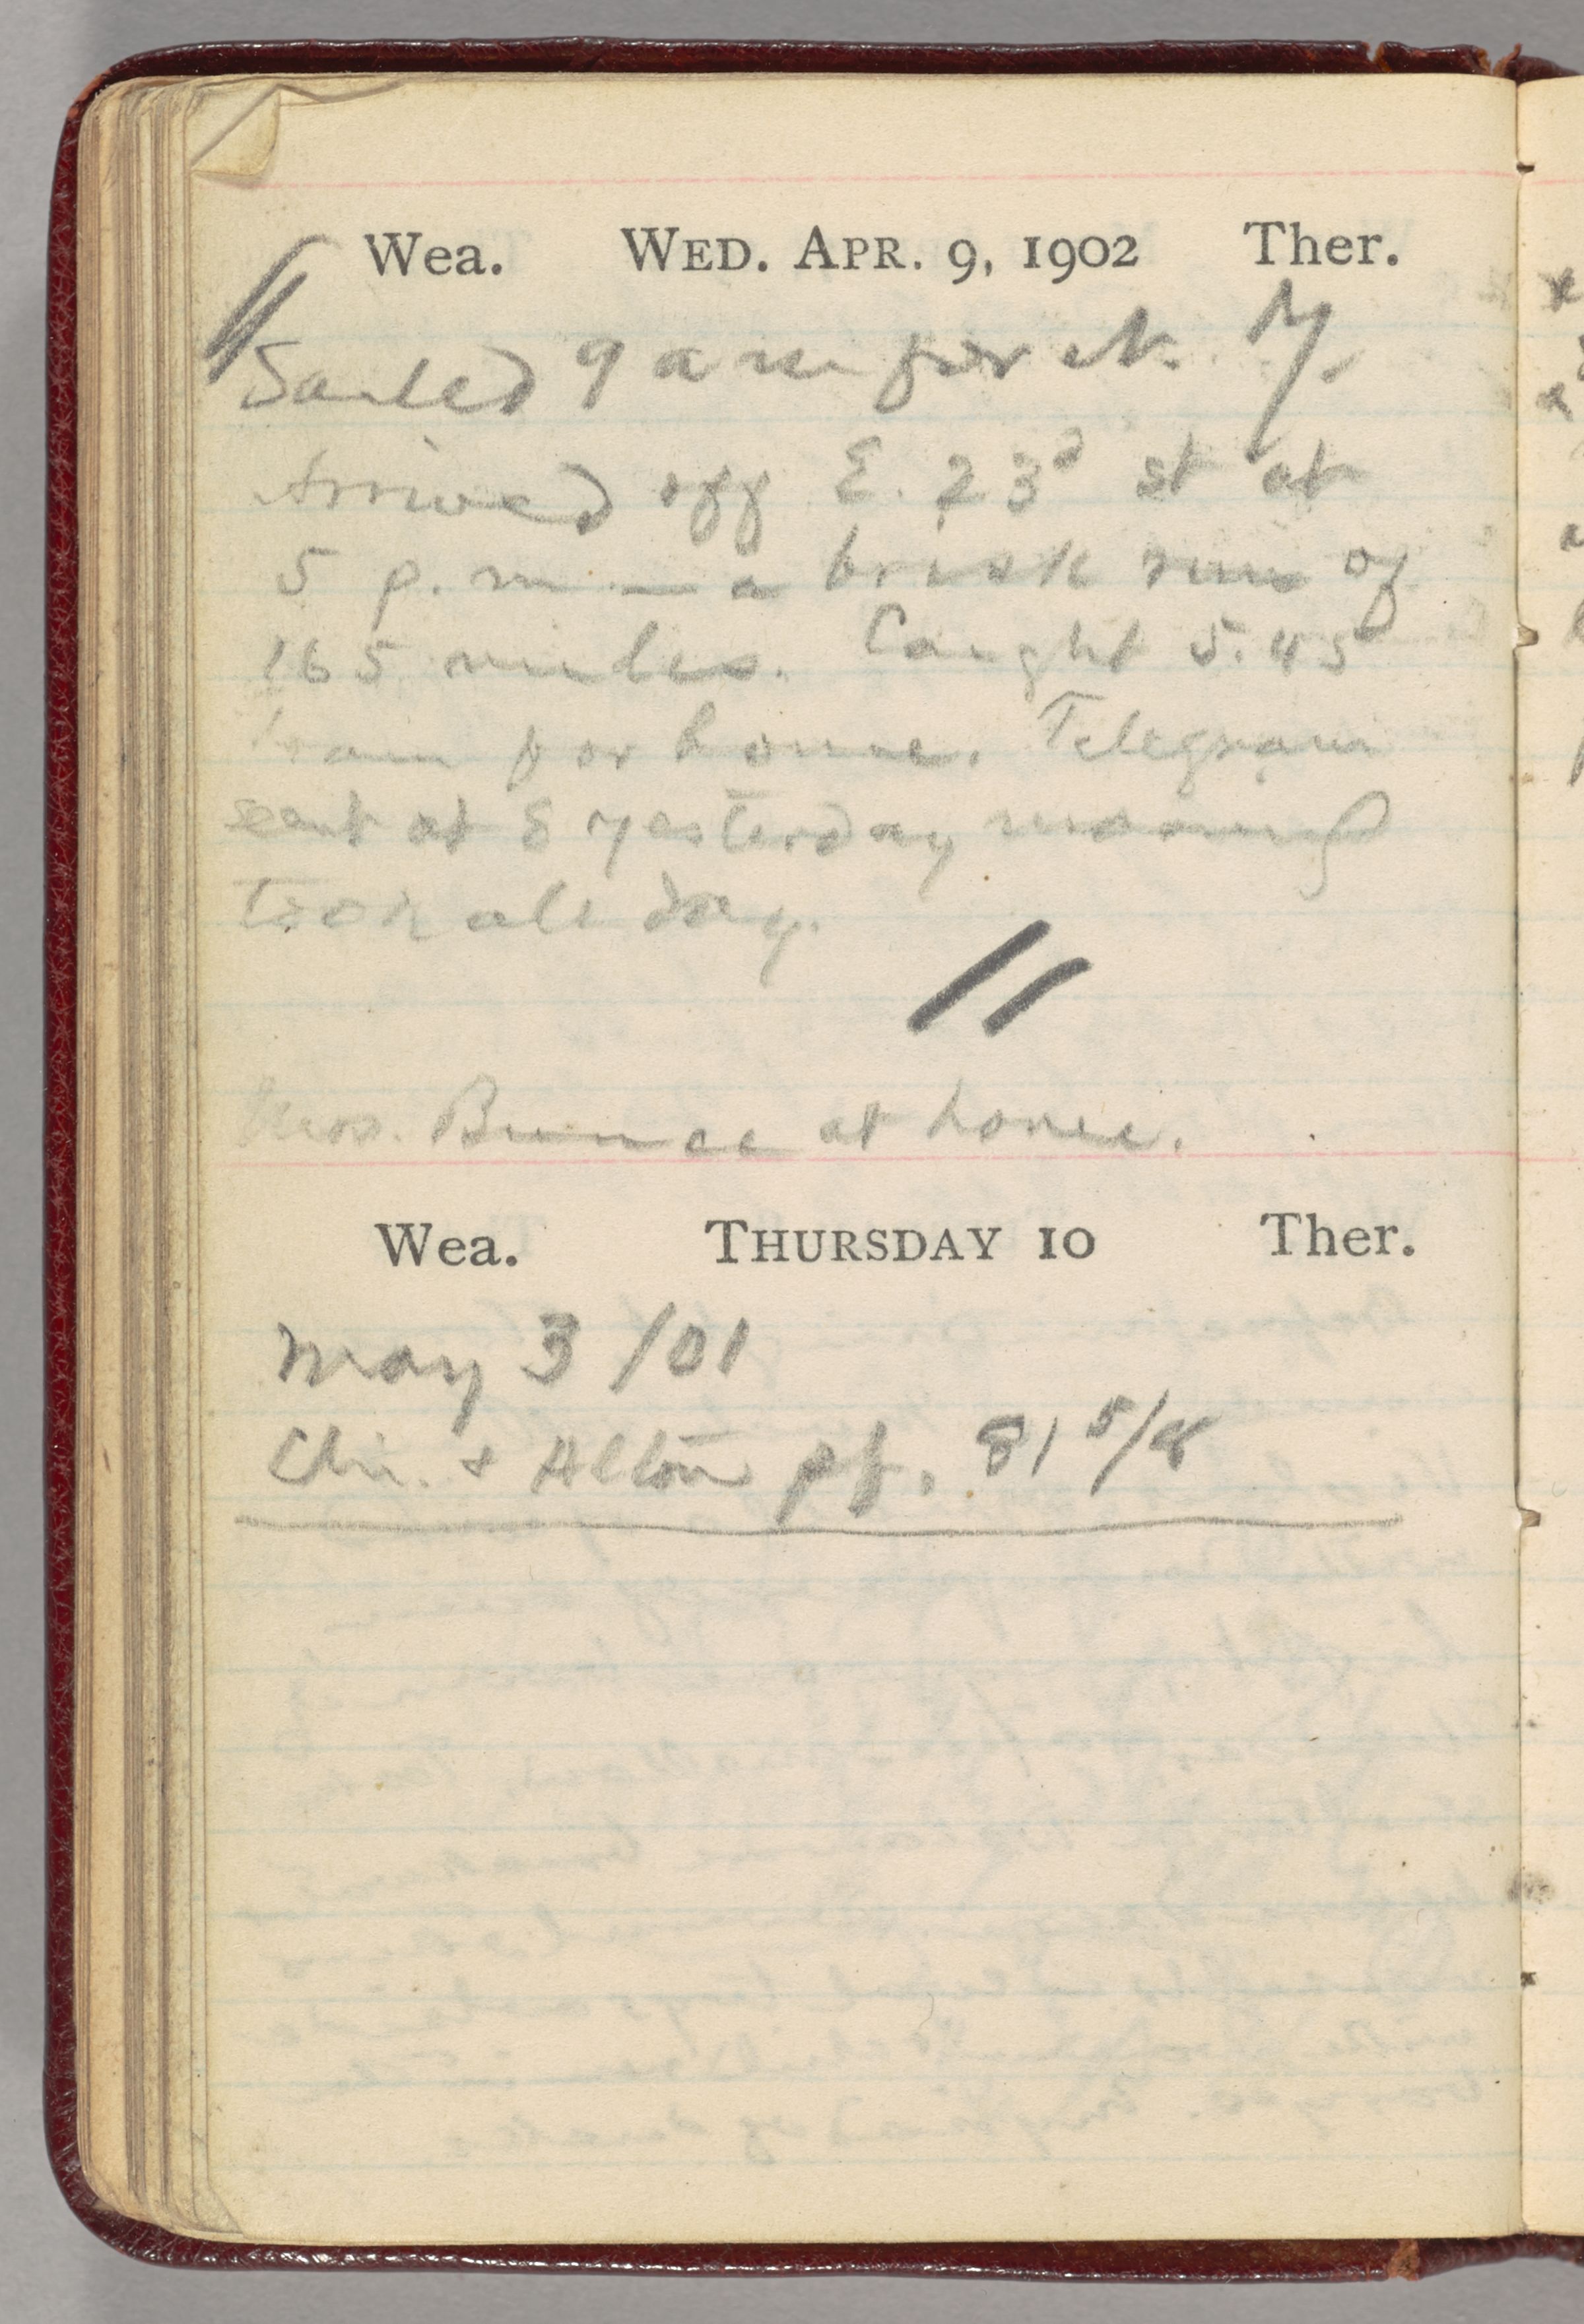 Wea. WED. APR. 9, 1902 Ther.
Sailed 9 a m for N. Y.
Arrived off E. 23d st at
5 p. m. — a brisk run of
165 miles. Caught 5.45
train for home. Telegram
sent at 8 yesterday morning
took all day.
Mrs. Bunce at home.
Wea. THURSDAY 10 Ther.
May 3 /01
Chi. & Alton pf. 81 5/8